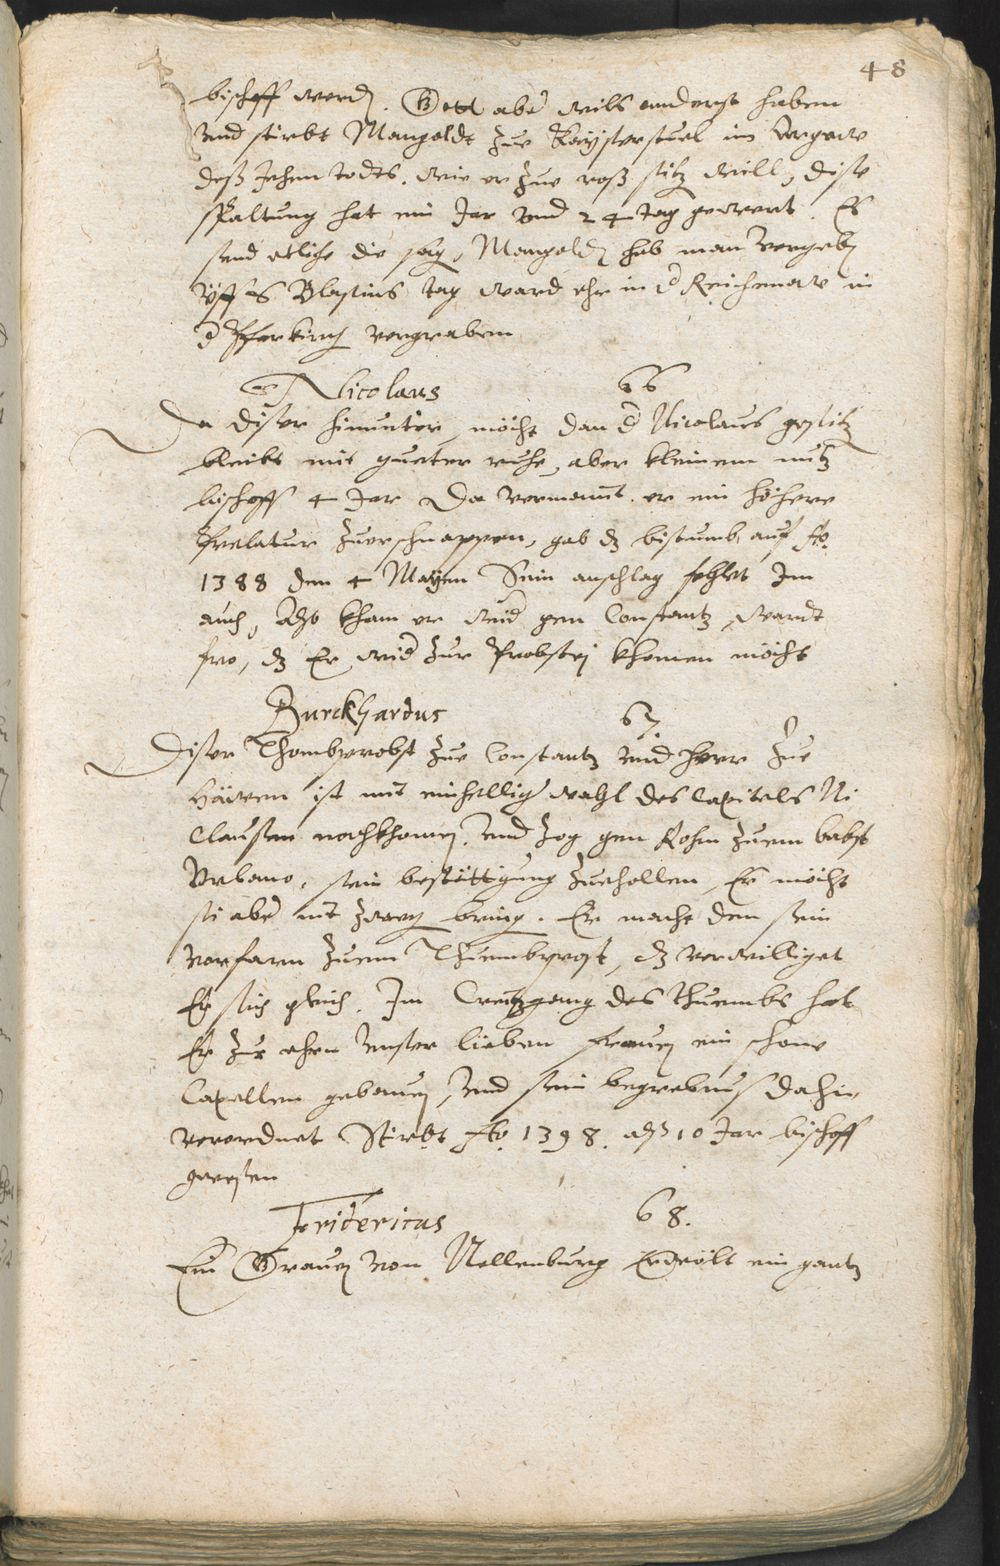 48
bischoff werdn. Gott aber wils anderst haben
und stirbt Mangoldt zue Kayserstuel im Ergew
deß Jehen todts. wie er zue roß sitzn will, dise
spaltung hat ein Jar und 24 tag gewert. Es
sind etliche die sagn, Mangoldn hab man vergebn
uff S Blasius tag ward ehr in d Reichenaw in
d Pfarkirch vergraben
Nicolaus 66
Da diser hinunter, möcht dan d Nicolaus
bleibt mit gueter ruhe, aber kleinem nutz
bischoff 4 Jar Da vermaint er ein höhere
Prelatur zuerschnappen, gab dz bistumb auf
1388 den 4 Mayen Sein anschlag fehlet Im
auch, Also kham er wid gen Constantz, wardt
fro, dz Er wid zur Probstej khomen möcht
Burckhardus 67.
Diser Thombprobst zue Constantz und Herr zue
Häwen ist mit einhellig wahl des Capitels Ni
Clausen nachkhomen. und zog gen Rohm zuem babst
Urbano, sein bestättigung zuehollen, Er möcht
si aber nit zwegn bringn. Er macht den sein
vorfarn zuem Thuembprost, dz verwilliget
Er sich gleich. Im Creutzgang des thuembs hat
Er zur ehrn unser lieben frauen ein schone
Capellen gebauen, und sein begrebnus dahin
verordnet Stirbt 1398. alß 10 Jar bischoff
gwesen
Fridericus 68.
Ein Grauen von Nellenburg Erwölt ein gantz